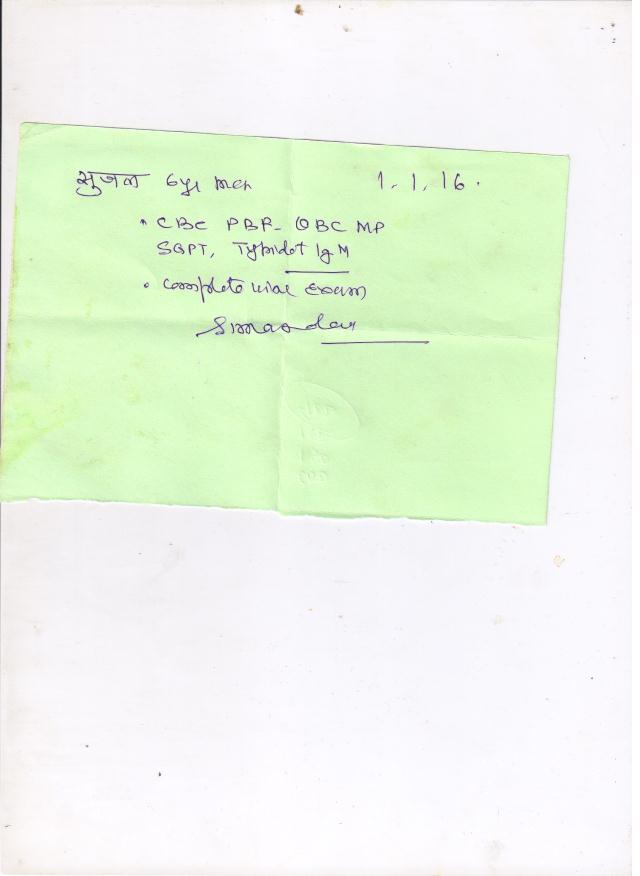 सुजल 6yr 1.1.16.
• CBC PBF- QBC MP
SGPT, Typhidot IgM
• Complete urine exam